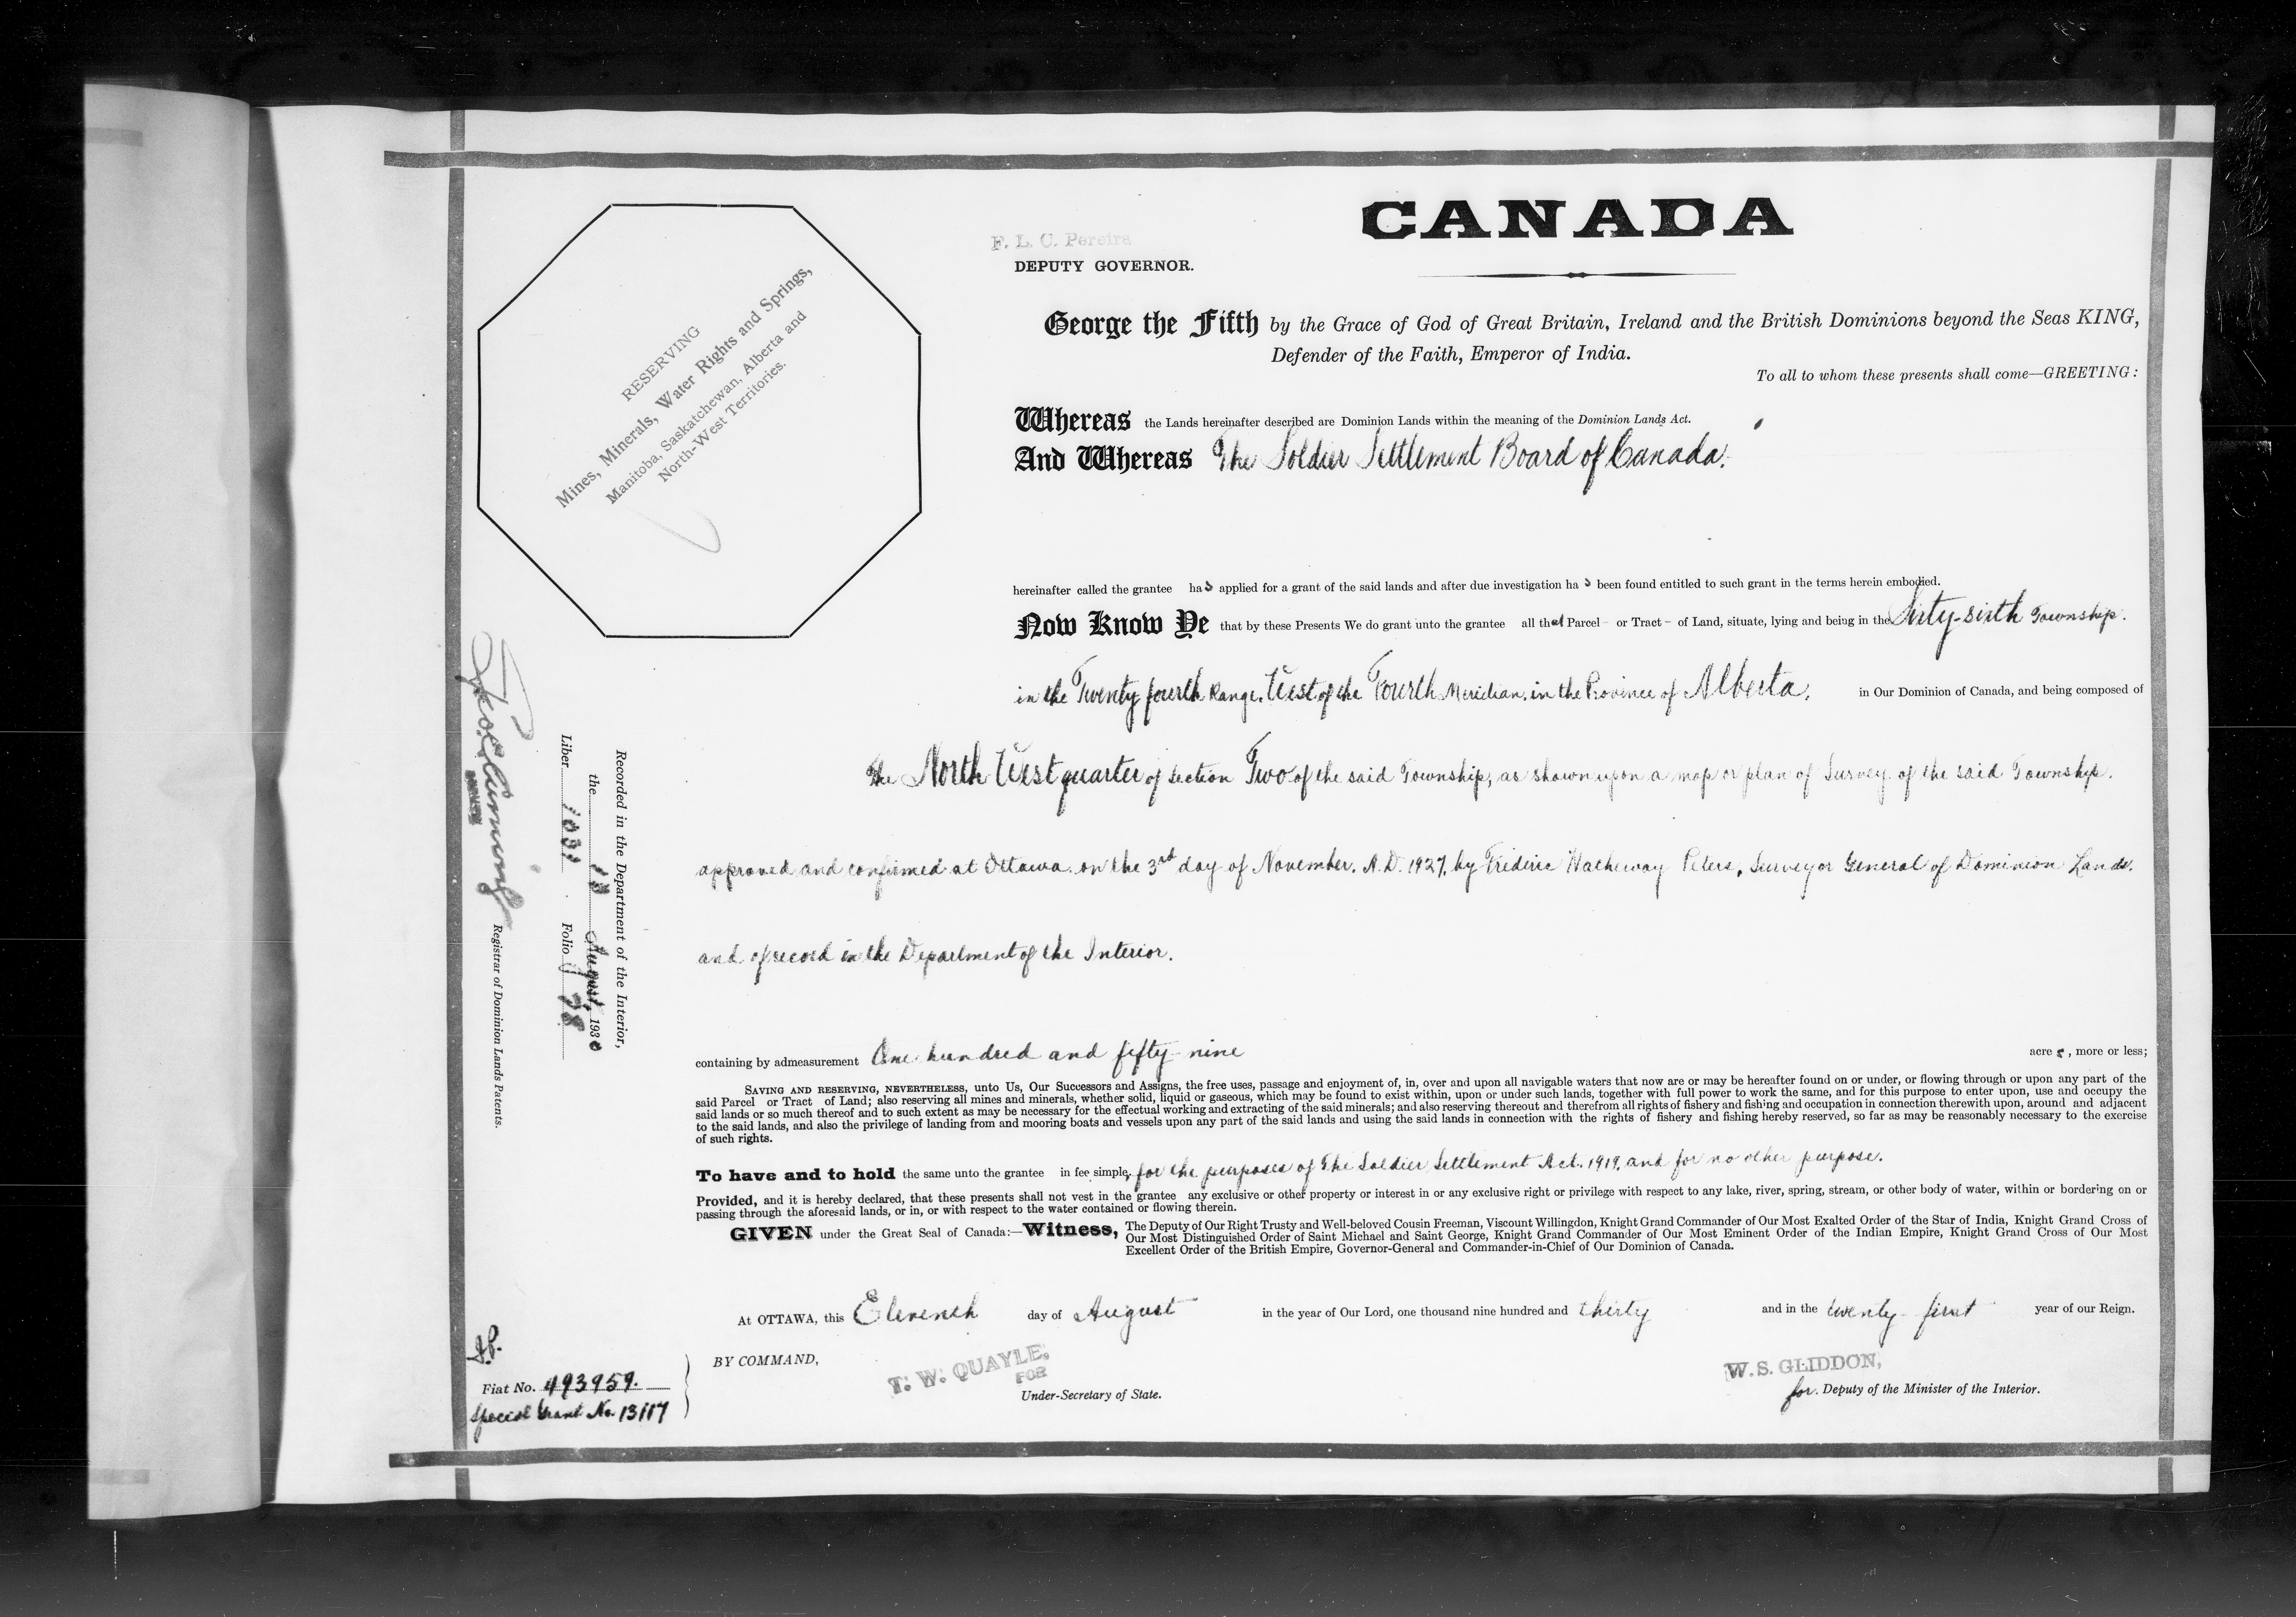 CANADA
F. L. C. Pereira
DEPUTY GOVERNOR.
RESERVING
Mines, Minerals, Water Rights and Springs,
Manitoba, Saskatchewan, Alberta and
North-West Territories.
George the Fifth by the Grace of God of Great Britain, Ireland and the British Dominions beyond the Seas KING,
Defender of the Faith, Emperor of India.
To all to whom these presents shall come—GREETING:
Whereas the Lands hereinafter described are Dominion Lands within the meaning of the Dominion Lands Act.
And Whereas The Soldier Settlement Board of Canada.
hereinafter called the grantee has applied for a grant of the said lands and after due investigation has been found entitled to such grant in the terms herein embodied.
Now Know Ye that by these Presents We do grant unto the grantee all that Parcel or Tract of Land, situate, lying and being in the Sixty-sixth Township.
in the Twenty fourth Range, West of the Fourth Meridian, in the Province of Alberta, in Our Dominion of Canada, and being composed of
The North West quarter of Section Two of the said Township, as shown upon a map or plan of Survey of the said Township.
approved and confirmed at Ottawa, on the 3rd day of November, A.D. 1927, by Frederic Hatheway Peters, Surveyor General of Dominion Lands.
and of record in the Department of the Interior.
containing by admeasurement One hundred and fifty-nine acres, more or less;
SAVING AND RESERVING, NEVERTHELESS, unto Us, Our Successors and Assigns, the free uses, passage and enjoyment of, in, over and upon all navigable waters that now are or may be hereafter found on or under, or flowing through or upon any part of the
said Parcel or Tract of Land; also reserving all mines and minerals, whether solid, liquid or gaseous, which may be found to exist within, upon or under such lands, together with full power to work the same, and for this purpose to enter upon, use and occupy the
said lands or so much thereof and to such extent as may be necessary for the effectual working and extracting of the said minerals; and also reserving thereout and therefrom all rights of fishery and fishing and occupation in connection therewith upon, around and adjacent
to the said lands, and also the privilege of landing from and mooring boats and vessels upon any part of the said lands and using the said lands in connection with the rights of fishery and fishing hereby reserved, so far as may be reasonably necessary to the exercise
of such rights.
To have and to hold the same unto the grantee in fee simple, for the purposes of The Soldier Settlement Act, 1919, and for no other purpose.
Provided, and it is hereby declared, that these presents shall not vest in the grantee any exclusive or other property or interest in or any exclusive right or privilege with respect to any lake, river, spring, stream, or other body of water, within or bordering on or
passing through the aforesaid lands, or in, or with respect to the water contained or flowing therein.
GIVEN under the Great Seal of Canada:—Witness, The Deputy of Our Right Trusty and Well-beloved Cousin Freeman, Viscount Willingdon, Knight Grand Commander of Our Most Exalted Order of the Star of India, Knight Grand Cross of
Our Most Distinguished Order of Saint Michael and Saint George, Knight Grand Commander of Our Most Eminent Order of the Indian Empire, Knight Grand Cross of Our Most
Excellent Order of the British Empire, Governor-General and Commander-in-Chief of Our Dominion of Canada.
At OTTAWA, this Eleventh day of August in the year of Our Lord, one thousand nine hundred and thirty and in the twenty-first year of our Reign.
BY COMMAND,
T. W. QUAYLE,
FOR
Under-Secretary of State.
W. S. GLIDDON,
for. Deputy of the Minister of the Interior.
Recorded in the Department of the Interior,
the August 1930
Liber Folio
Registrar of Dominion Lands Patents.
Fiat No. 493959.
Special Grant No. 13117